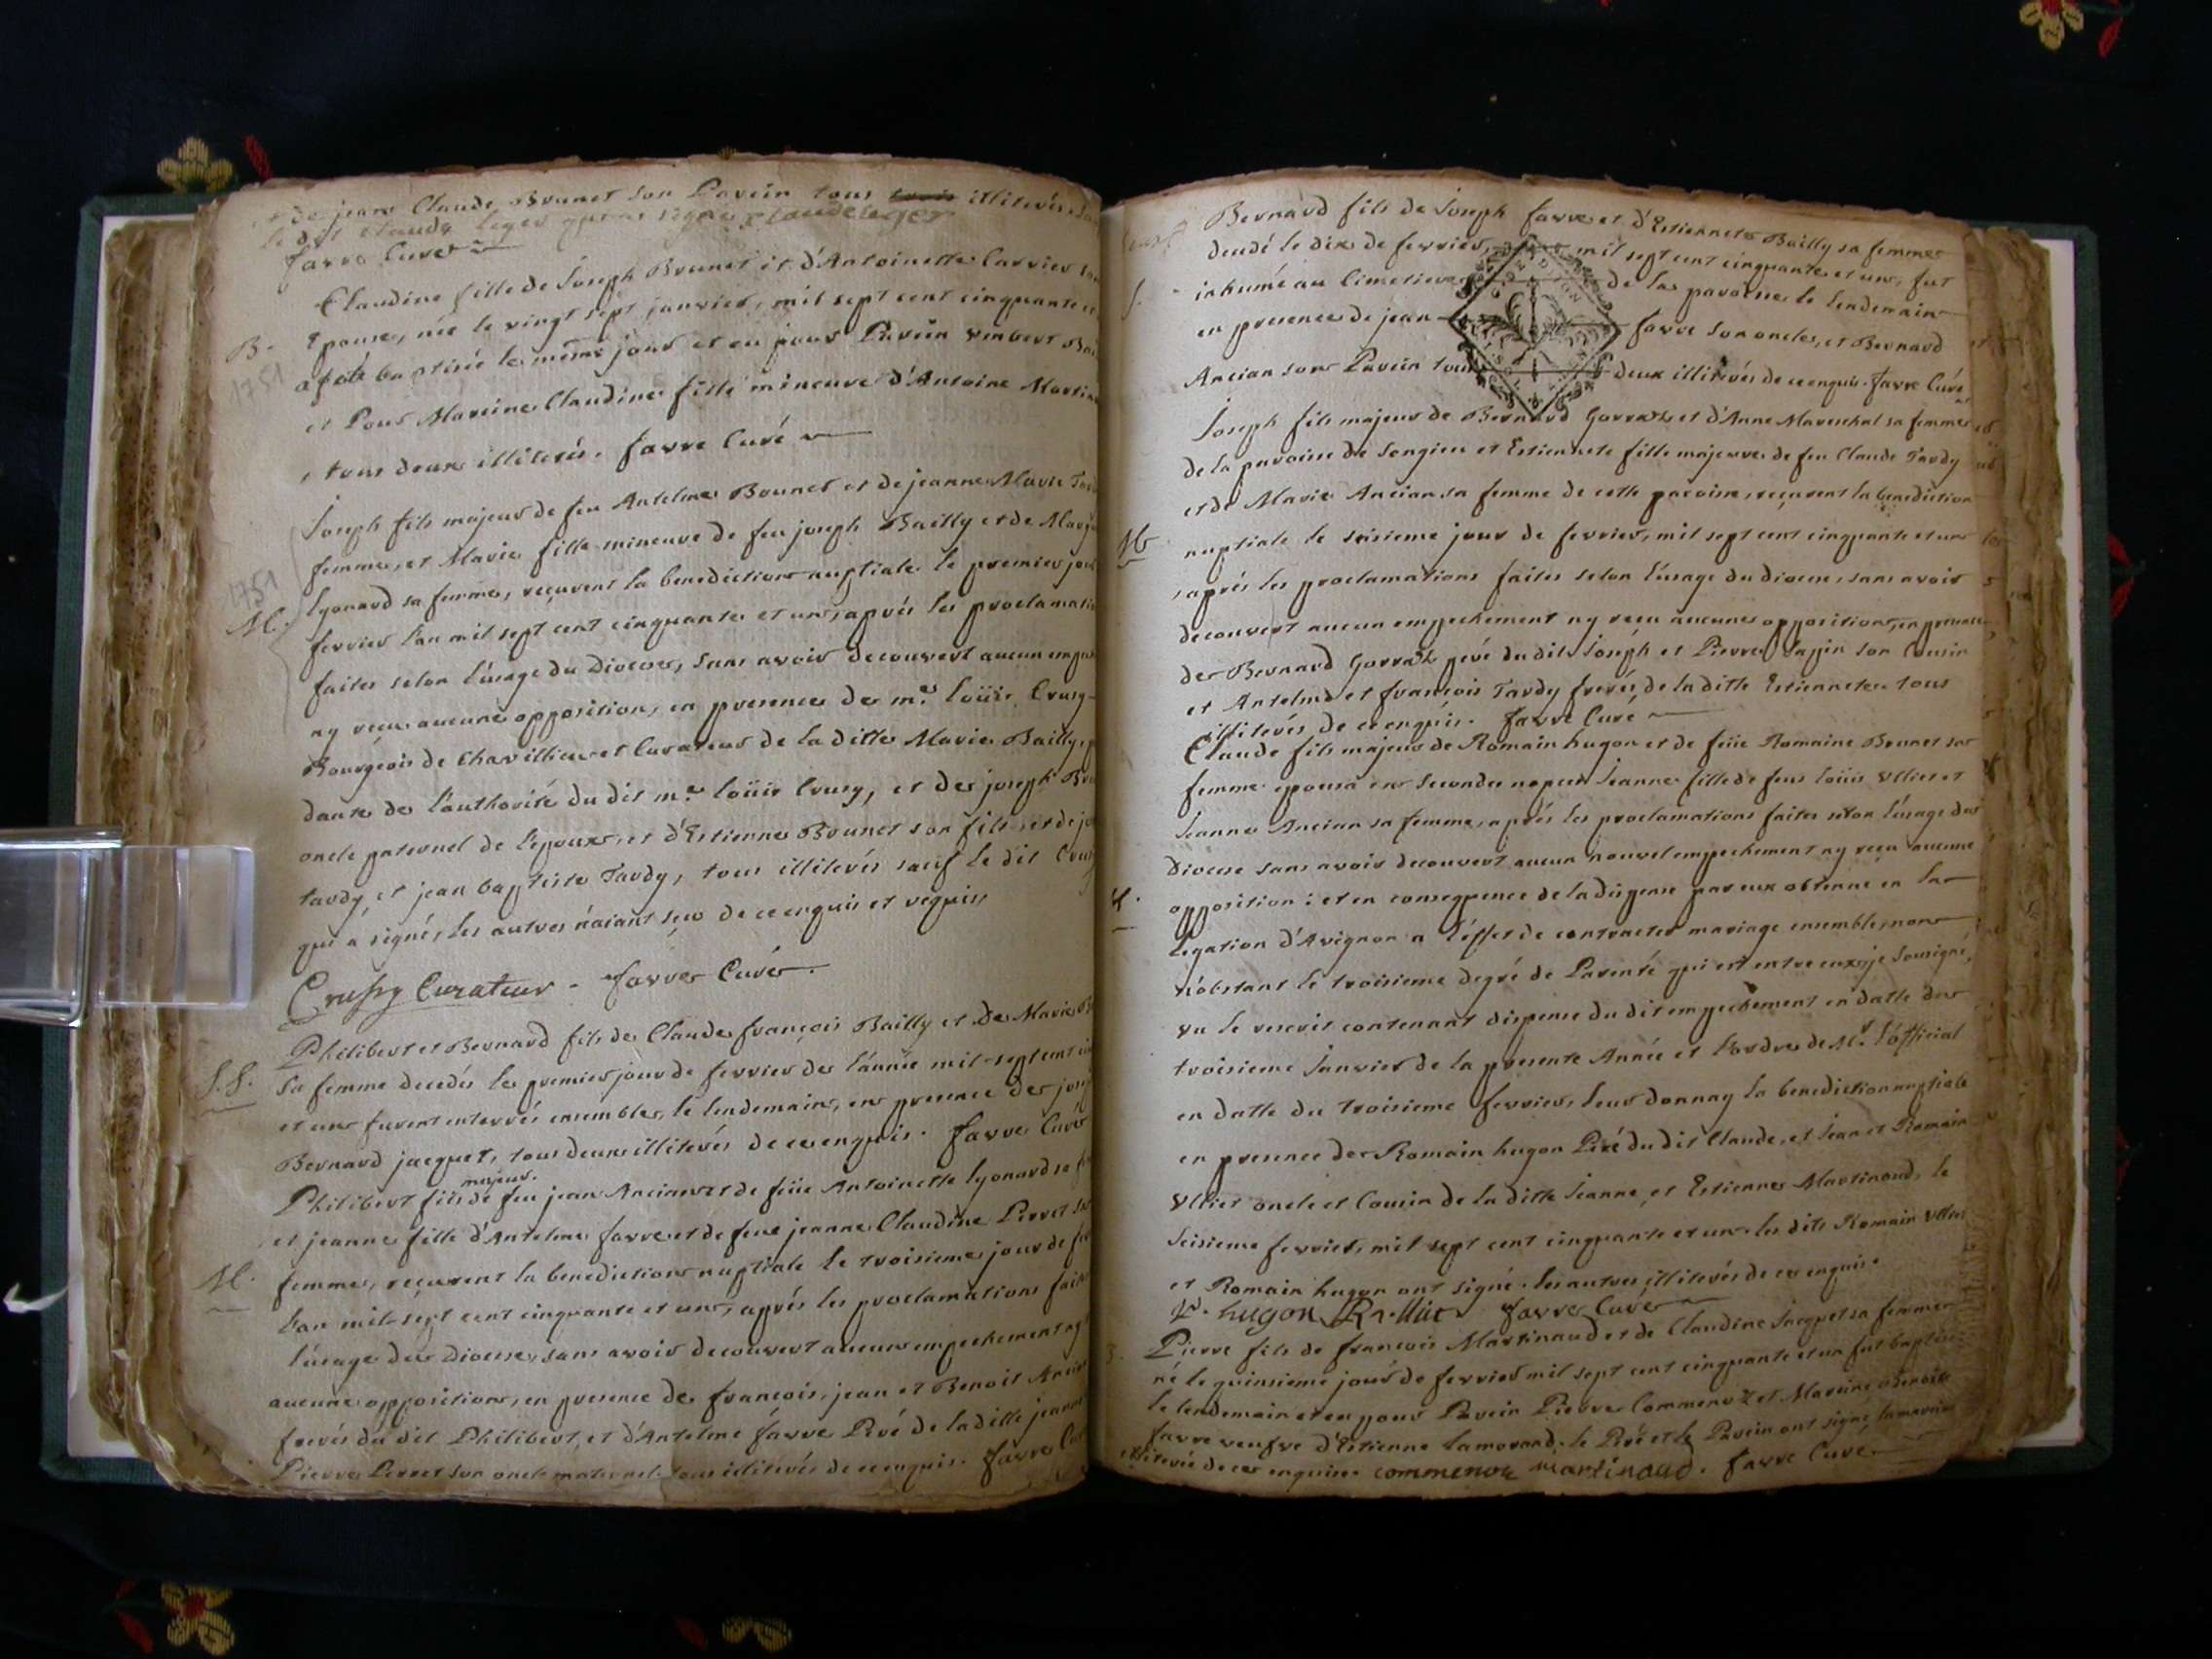 de jean Claude Brunet son Parein tous illiterés
le dit Claude leger qui a signé Claude leger
favre Curé
Claudine fille de Joseph Brunet et d'Antoinette Carrier son
B.
Epouse, née le vingt sept janvier, mil sept cent cinquante
1751
a été baptisée le même jour et eu pour Parein Vmbert
et Pour Mareine Claudine fille mineure d'Antoine
tous deux illiterés. favre Curé
Joseph fils majeur de feu Antelme Brunet et de jeanne Marie
femme, et Marie fille mineure de feu joseph Bailly et de
1751
M.
lyonard sa femme, reçurent la benediction nuptiale le premier
fevrier l'an mil sept cent cinquante et un, aprés les
faites selon l'úsage du Diocese, sans avoir decouvert aucun
ny reçu aucune opposition, en presence de me. loüis Crusy
Bourgeois de Chavillieu et Curateur de la ditte Marie Bailly
dante de l'authorité du dit me. loüis Crusy, et de joseph
oncle paternel de l'epoux, et d'Estienne Brunet son fils, et de
tardy, et jean baptiste Tardy, tous illiterés sauf le dit
qui a signé, les autres n'aiant sçu de ce enquis et requis
Crussy Curateur - favre Curé.
Philibert et Bernard fils de Claude françois Bailly et de Marie
S. S.
Sa femme decedés le premier jour de fevrier de l'année mil sept cent
et un furent enterrés ensemble, le lendemain, en presence de
Bernard jacquet, tous deux illiterés de ce enquis. favre Curé
majeur.
Philibert fils de feu jean Ancian et de feüe Antoinette lyonard sa
et jeanne fille d'Antelme favre et de feue jeanne Claudine Perret sa
M.
femme, reçurent la benediction nuptiale le troisieme jour de
l'an mil sept cent cinquante et un, aprés les proclamations
l'úsage du Diocese, sans avoir decouvert aucun empechement ny
aucune opposition, en presence de françois, jean et Benoit
frerés du dit Philibert, et d'Antelme favre Peré de la ditte jeanne
Pierre Perret son oncle maternel tous illiterés de ce enquis. favre
Bernard fils de Joseph favre et d'Estiennete Bailly sa femme
decedé le dix de fevrier, mil sept cent cinquante et un, fut
S.
inhumé au Cimetiere de la paroisse le lendemain
en presence de jean favre son oncle, et Bernard
Ancian son Parein tous deux illiterés de ce enquis. favre Curé
Joseph fils majeur de Bernard Garraz et d'Anne Mareschal sa femme
de la paroisse de Songieu et Estiennete fille majeure de feu Claude Tardy
et de Marie Ancian sa femme de cette paroisse, reçurent la benediction
M
nuptiale le seisieme jour de fevrier, mil sept cent cinquante et un
aprés les proclamations faites selon l'úsage du diocese, sans avoir
decouvert aucun empechement ny reçu aucune opposition, en presence
de Bernard Garraz peré du dit Joseph et Pierre Sapin son Cousin
et Antelme et françois Tardy frerés de la ditte Estiennete tous
illiterés de ce enquis. favre Curé
Claude fils majeur de Romain hugon et de feüe Romaine Brunet sa
femme epousa en secondes nopces Jeanne fille de feu loüis Vlliet et
Jeanne Ancian sa femme, aprés les proclamations faites selon l'úsage du
diocese sans avoir decouvert aucun nouvel empechement ny reçu aucune
opposition : et en consequence de la dispense par eux obtenue en la
legation d'Avignon a l'effet de contracter mariage ensemble, non
n'obstant le troisieme degré de Parenté qui est entre eux, je sousigné,
vu le rescrit contenant dispense du dit empechement en datte du
troisieme Janvier de la presente Année et l'ordre de Mr. l'official
en datte du troisieme fevrier, leur donnay la benediction nuptiale
en presence de Romain hugon Peré du dit Claude, et Jean et Romain
Vlliet oncle et Cousin de la ditte Jeanne, et Estienne Martinaud, le
Seisieme fevrier, mil sept cent cinquante et un. les dits Romain Vlliet
et Romain hugon ont signé. les autres illiterés de ce enquis.
R. hugon R. Vlliet favre Curé
Pierre fils de françois Martinaud et de Claudine Jacquet sa femme
né le quinsieme jour de fevrier mil sept cent cinquante et un fut baptisé
le lendemain et eu pour Parein Pierre Commenoz et Mareine Benoite
favre veufve d'Estienne lamorand. le Peré et le Parein ont signé, la mareine
illiterée de ce enquise commenoz martinaud. favre Curé